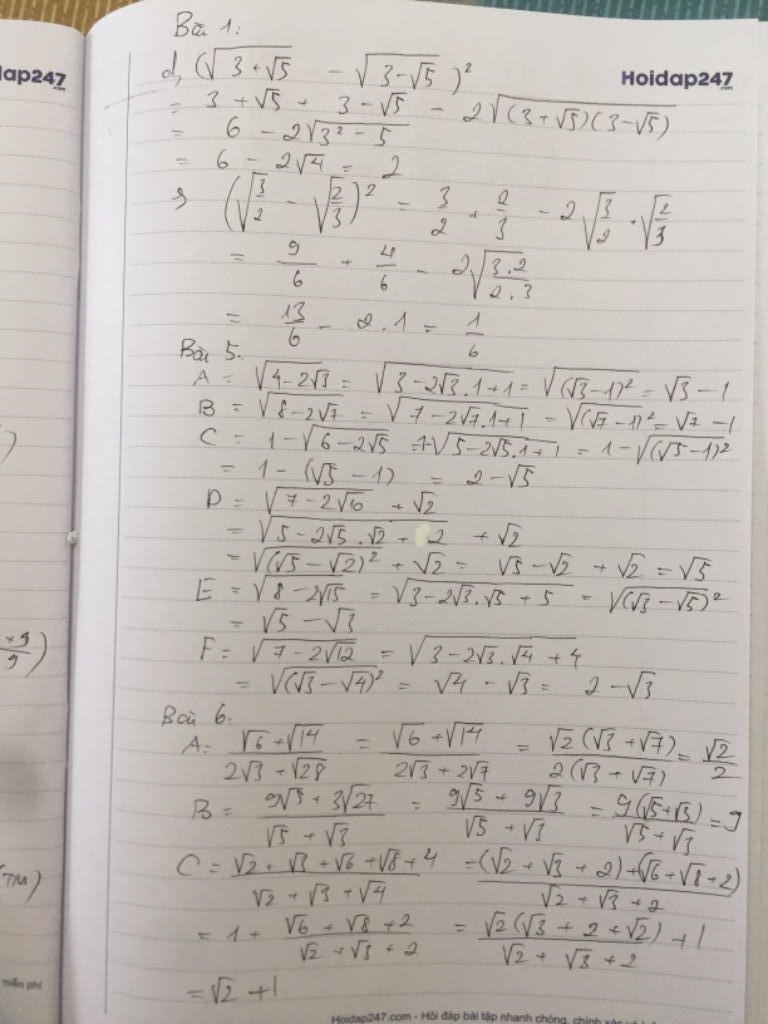 Bài 1:
lap247
.com
Hoidap247
.com
d, (√(3+√5) - √(3-√5))²
= 3 + √5 + 3 - √5 - 2√((3+√5)(3-√5))
= 6 - 2√(3² - 5)
= 6 - 2√4 = 2
(√(3/2) - √(2/3))² = 3/2 + 2/3 - 2√(3/2) . √(2/3)
= 9/6 + 4/6 - 2√((3.2)/(2.3))
= 13/6 - 2.1 = 1/6
Bài 5.
A = √(4-2√3) = √(3-2√3.1+1) = √((√3-1)²) = √3-1
B = √(8-2√7) = √(7-2√7.1+1) = √((√7-1)²) = √7-1
C = 1-√(6-2√5) = 1-√(5-2√5.1+1) = 1-√((√5-1)²)
= 1-(√5-1) = 2-√5
D = √(7-2√10) + √2
= √(5-2√5.√2+2) + √2
= √((√5-√2)²) + √2 = √5-√2 + √2 = √5
E = √(8-2√15) = √(3-2√3.√5+5) = √((√3-√5)²)
= √5-√3
F = √(7-2√12) = √(3-2√3.√4+4)
= √((√3-√4)²) = √4-√3 = 2-√3
Bài 6.
A = (√6+√14)/(2√3+√28) = (√6+√14)/(2√3+2√7) = √2(√3+√7)/2(√3+√7) = √2/2
B = (9√5+3√27)/(√5+√3) = (9√5+9√3)/(√5+√3) = 9(√5+√3)/(√5+√3) = 9
C = (√2+√3+√6+√8+4)/(√2+√3+√4) = ((√2+√3+2)+(√6+√8+2))/(√2+√3+2)
= 1 + (√6+√8+2)/(√2+√3+2) = √2(√3+2+√2)/(√2+√3+2) + 1
= √2+1
(TM)
miễn phí
Hoidap247.com - Hỏi đáp bài tập nhanh chóng, chính xác và